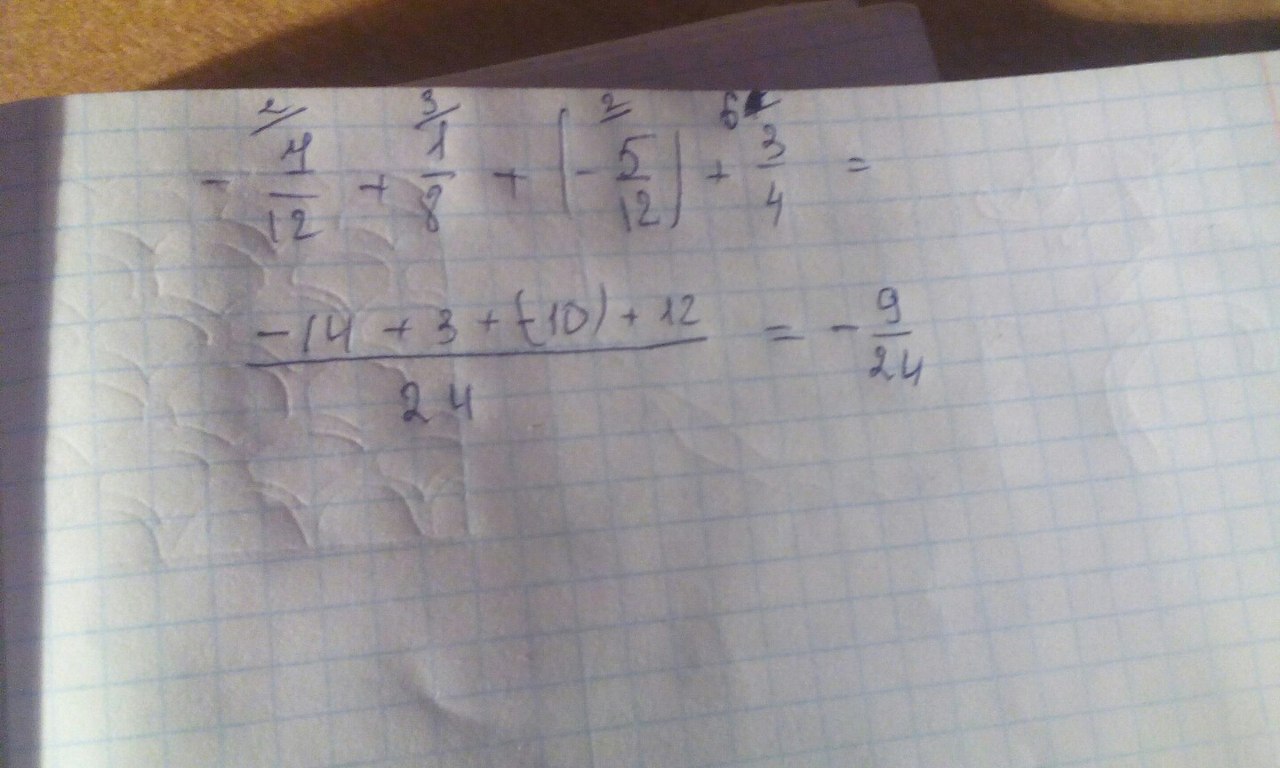 2/ 3/ 2/ 6/
- 7/12 + 1/8 + (- 5/12) + 3/4 =
(-14 + 3 + (-10) + 12)/24 = - 9/24